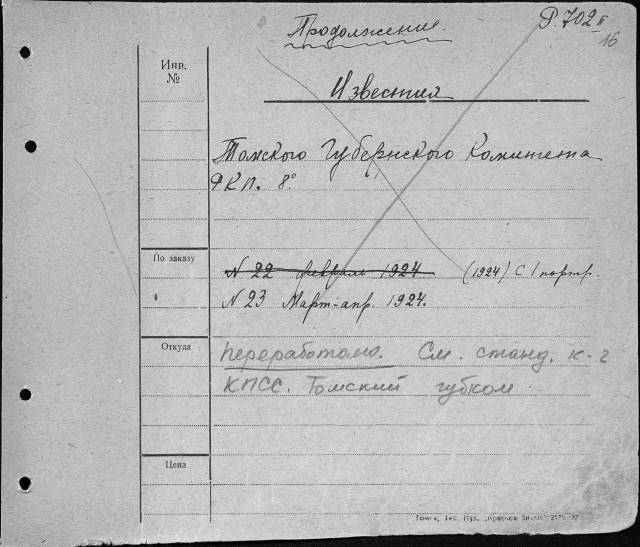 Продолжение.
Р. 702 II
16
Инв.
№
Известия
Томского Губернского Комитета
РКП. 8°
По заказу
N 22 февраль 1924 (1924) С 1 портр.
N 23 Март-апр. 1924.
Откуда
Переработано. См. станд. к-г
КПСС. Томский губком
Цена
Томск, Тип. Изд. „Красное Знамя"